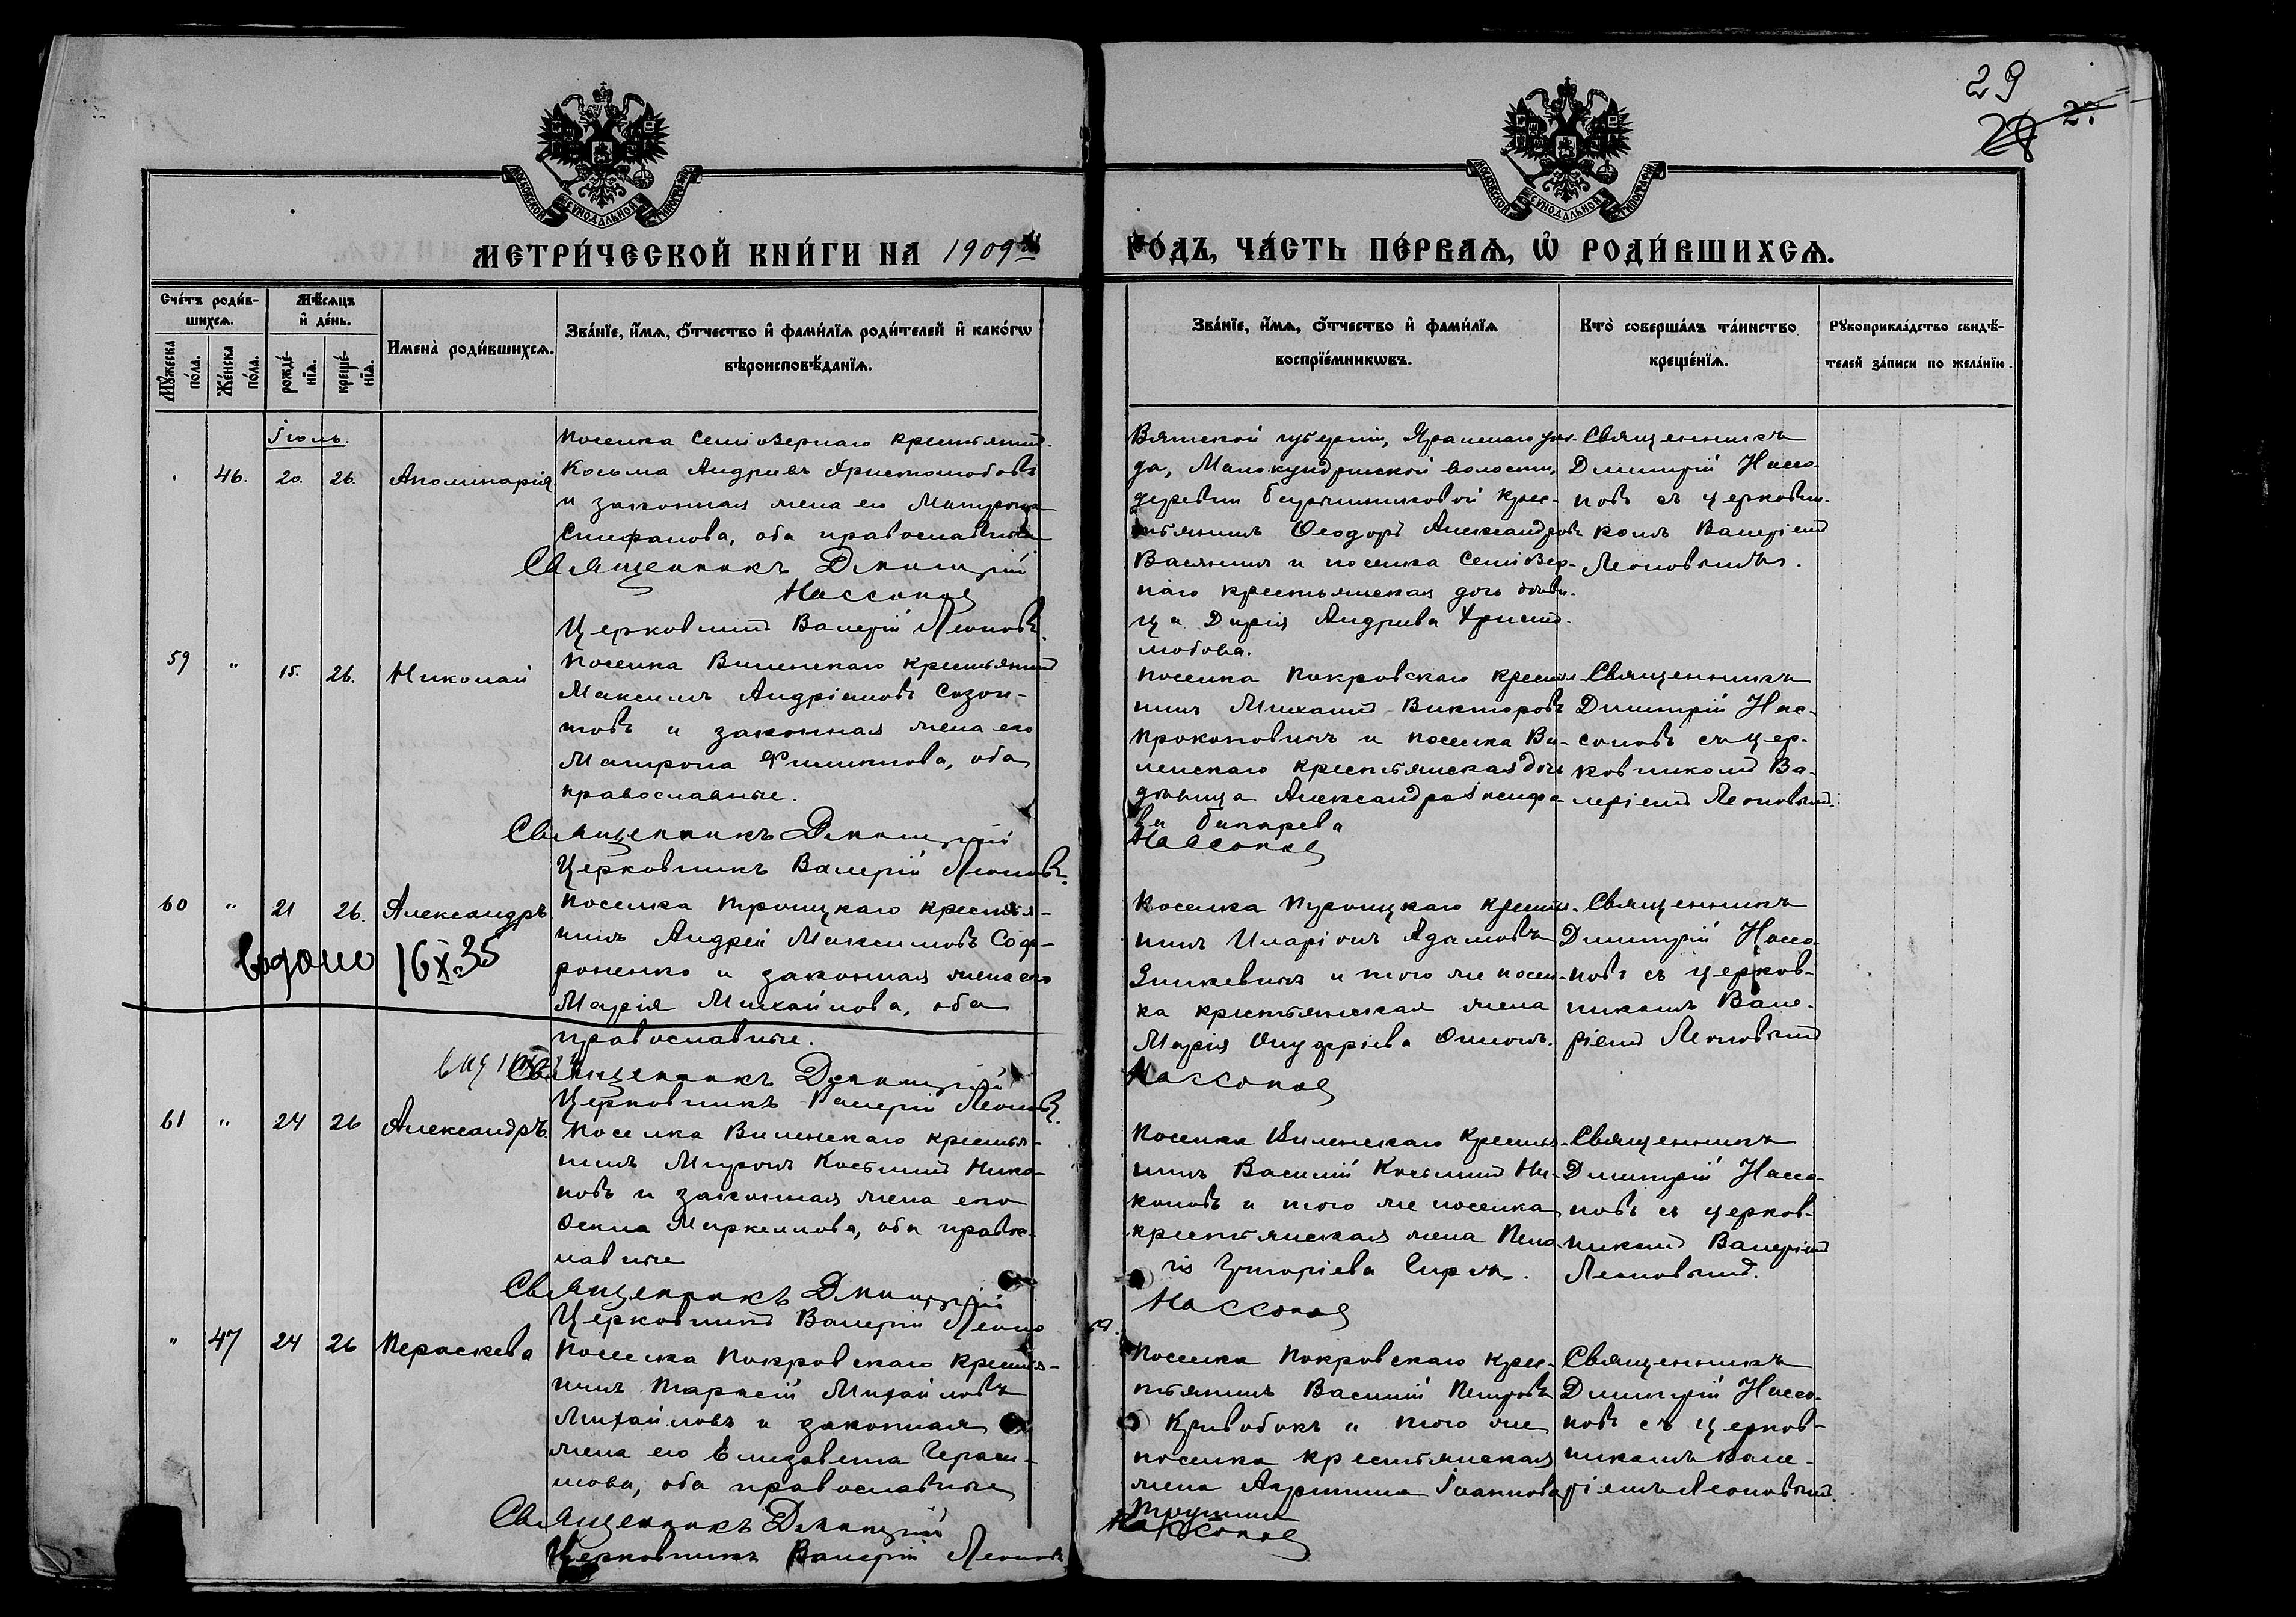 29
28
27
МОСКОВСКОЙ СѴНОДАЛЬНОЙ ТИПОГРАФІИ
МОСКОВСКОЙ СѴНОДАЛЬНОЙ ТИПОГРАФІИ
МЕТРИ́ЧЕСКОЙ КНИ́ГИ НА 1909й
ГО́ДЪ, ЧА́СТЬ ПЕ́РВАѦ, Ѡ҆ РОДИ́ВШИХСѦ.
Сче́тъ роди́в-
шихсѧ.
Мѣ́сѧцъ
и҆ де́нь.
Мꙋ́жеска
по́ла.
Же́нска
по́ла.
рожде́-
нїѧ.
креще́-
нїѧ.
Имена̀ роди́вшихсѧ.
Зва́нїе, и҆́мѧ, ѻ҆́тчество и҆ фами́лїѧ роди́телей и҆ како́гѡ
вѣроисповѣ́данїѧ.
Зва́нїе, и҆́мѧ, ѻ҆́тчество и҆ фами́лїѧ
воспрїе́мникѡвъ.
Кто̀ соверша́лъ та́инство
креще́нїѧ.
Рꙋкоприкла́дство свидѣ́-
телей за́писи по жела́нїю.
Іюль.
46. 20. 26. Аполинарія
Поселка Семіозернаго крестьянинъ
Козьма Андреевъ Христолюбовъ
и законная жена его Матрона
Стефанова, оба православные
Священникъ Димитрій
Нассонов
Церковникъ Валерій Леоновъ.
Вятской губерніи, Яранскаго уѣз-
да, Малокундышской волости,
деревни крес-
тьянинъ Ѳеодоръ Александровъ
и поселка Семіозер-
наго крестьянская дочь дѣви-
ца Дарія Андреева Христо-
любова.
Священникъ
Димитрій Нассо-
новъ съ церковни-
комъ Валеріемъ
Леоновымъ.
59 " 15. 26. Николай
Поселка Виленскаго крестьянинъ
Максимъ Андріановъ Созон-
товъ и законная жена его
Матрона Филиппова, оба
православные.
Священникъ Димитрій
Церковникъ Валерій Леоновъ.
Поселка Покровскаго крестья
нинъ Михаилъ Викторовъ
Прокоповичъ и поселка Ви-
ленскаго крестьянская дочь
дѣвица Александра
Нассонов
Священникъ
Димитрій Нас-
соновъ съ цер-
ковникомъ Ва-
леріемъ Леоновымъ.
60 " 21 26. Александръ
Выдано 16 X 35
Поселка Троицкаго крестья-
нинъ Андрей Максимовъ Соф-
роненко и законная жена его
Марія Михайлова, оба
православные.
Священникъ Димитрій
Церковникъ Валерій Леоновъ.
Поселка Троицкаго крестья-
нинъ Иларіонъ Адамовъ
и того же посел-
ка крестьянская жена
Марія Онуфріева
Нассонов
Священникъ
Димитрій Нассо-
новъ съ церков-
никомъ Вале-
ріемъ Леоновымъ
61 " 24 26 Александръ.
Поселка Виленскаго крестья-
нинъ Миронъ Косьминъ Нико-
новъ и законная жена его
Маркеллова, оба правос-
лавные
Священникъ Димитрій
Церковникъ Валерій Леонов
Поселка Виленскаго крестья-
нинъ Василій Косьминъ Ни-
коновъ и того же поселка
крестьянская жена Пела-
гія Григорьева
Нассонов
Священникъ
Димитрій Нассо-
новъ съ церков-
никомъ Валеріемъ
Леоновымъ.
" 47 24 26 Пераскева
Поселка Покровскаго крестья-
нинъ Тарасій Михайловъ
Михайловъ и законная
жена его Елизавета Гераси-
мова, оба православные
Священникъ Димитрій
Церковникъ Валерій Леоновъ
Поселка Покровскаго крес-
тьянинъ Василій Петровъ
Кривобокъ и того же
поселка крестьянская
жена Іоаннова
Нассонов
Священникъ
Димитрій Нассо-
новъ съ церков-
никомъ Вале-
ріемъ Леоновымъ.